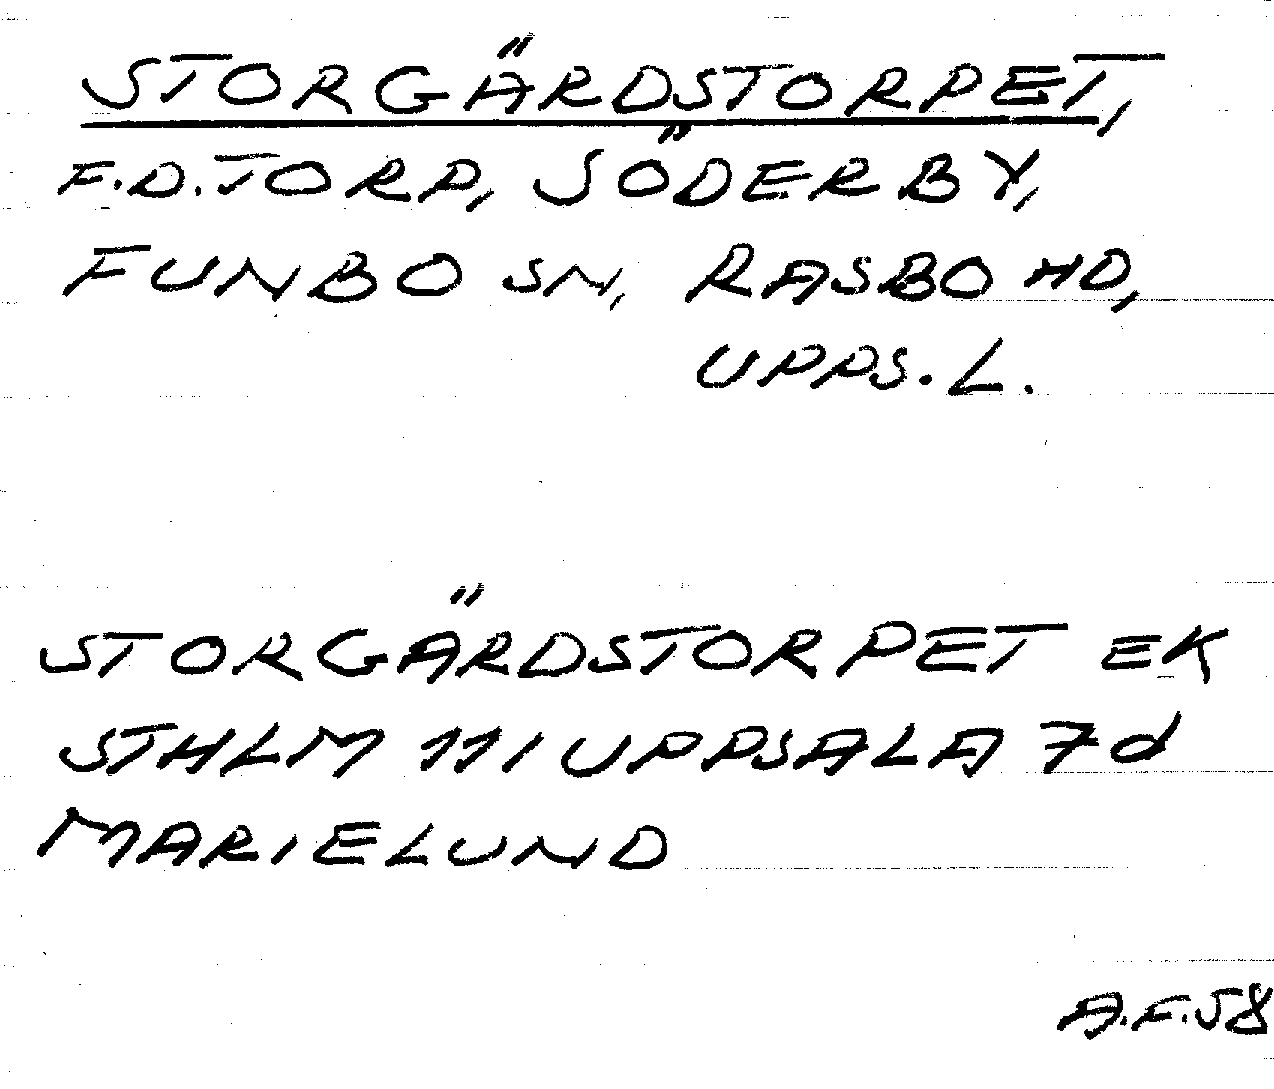 STORGÄRDSTORPET,
F.D. TORP, SÖDERBY,
FUNBO SN, RASBO HD,
UPPS. L.
STORGÄRDSTORPET EK
STHLM 111 UPPSALA 7d
MARIELUND
A.F. 58